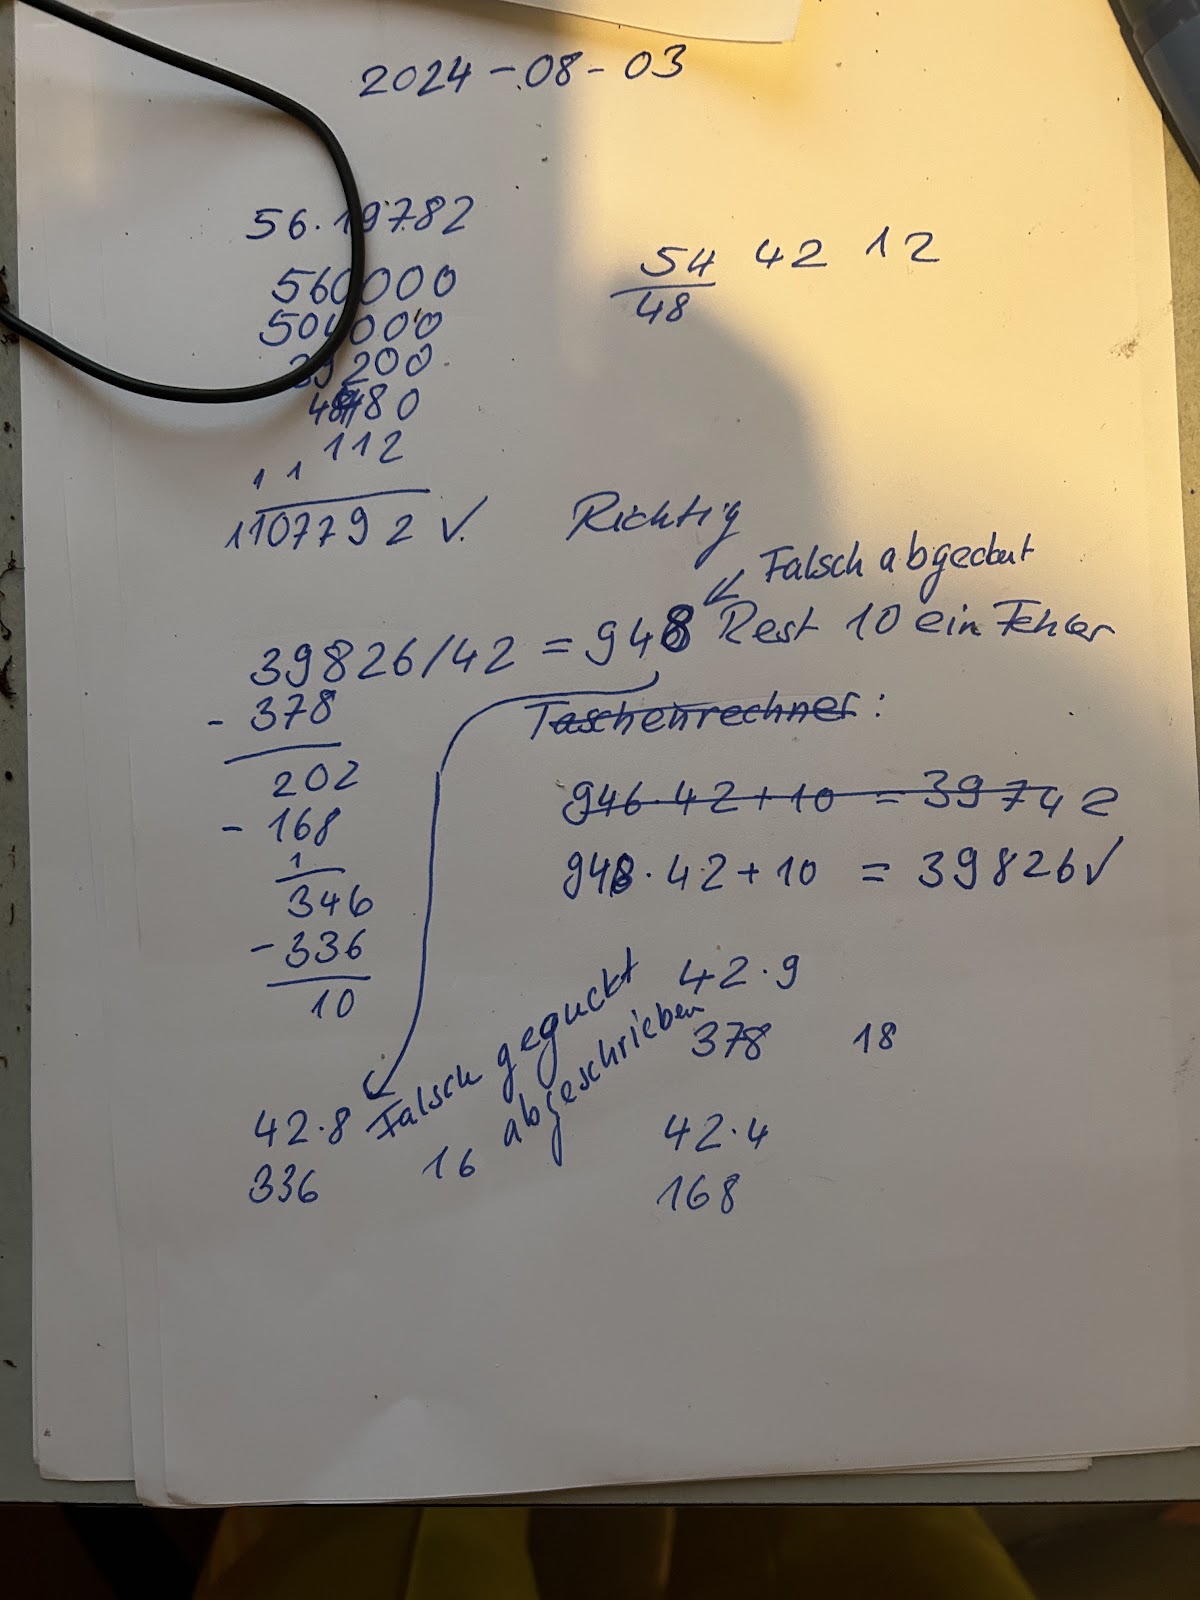 2024-08-03
56·19782
560000
504000
39200
4480
112
1 1
1107792 ✓.
54 42 12
48
Richtig
Falsch
39826/42 = 948 Rest 10 ein Fehler
- 378
202
- 168
1
346
- 336
10
Taschenrechner:
946·42+10 = 39742
948·42+10 = 39826✓
42·9
378 18
42·4
168
42·8
336 16
Falsch geguckt
abgeschrieben